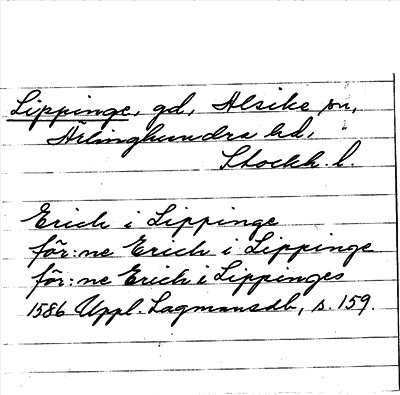 Lippinge, gd, Alsike sn,
Ärlinghundra hd,
Stockh. l.
Erich i Lippinge
för:ne Erich i Lippinge
för:ne Erich i Lippinges
1586 Uppl. Lagmansdb, s. 159.